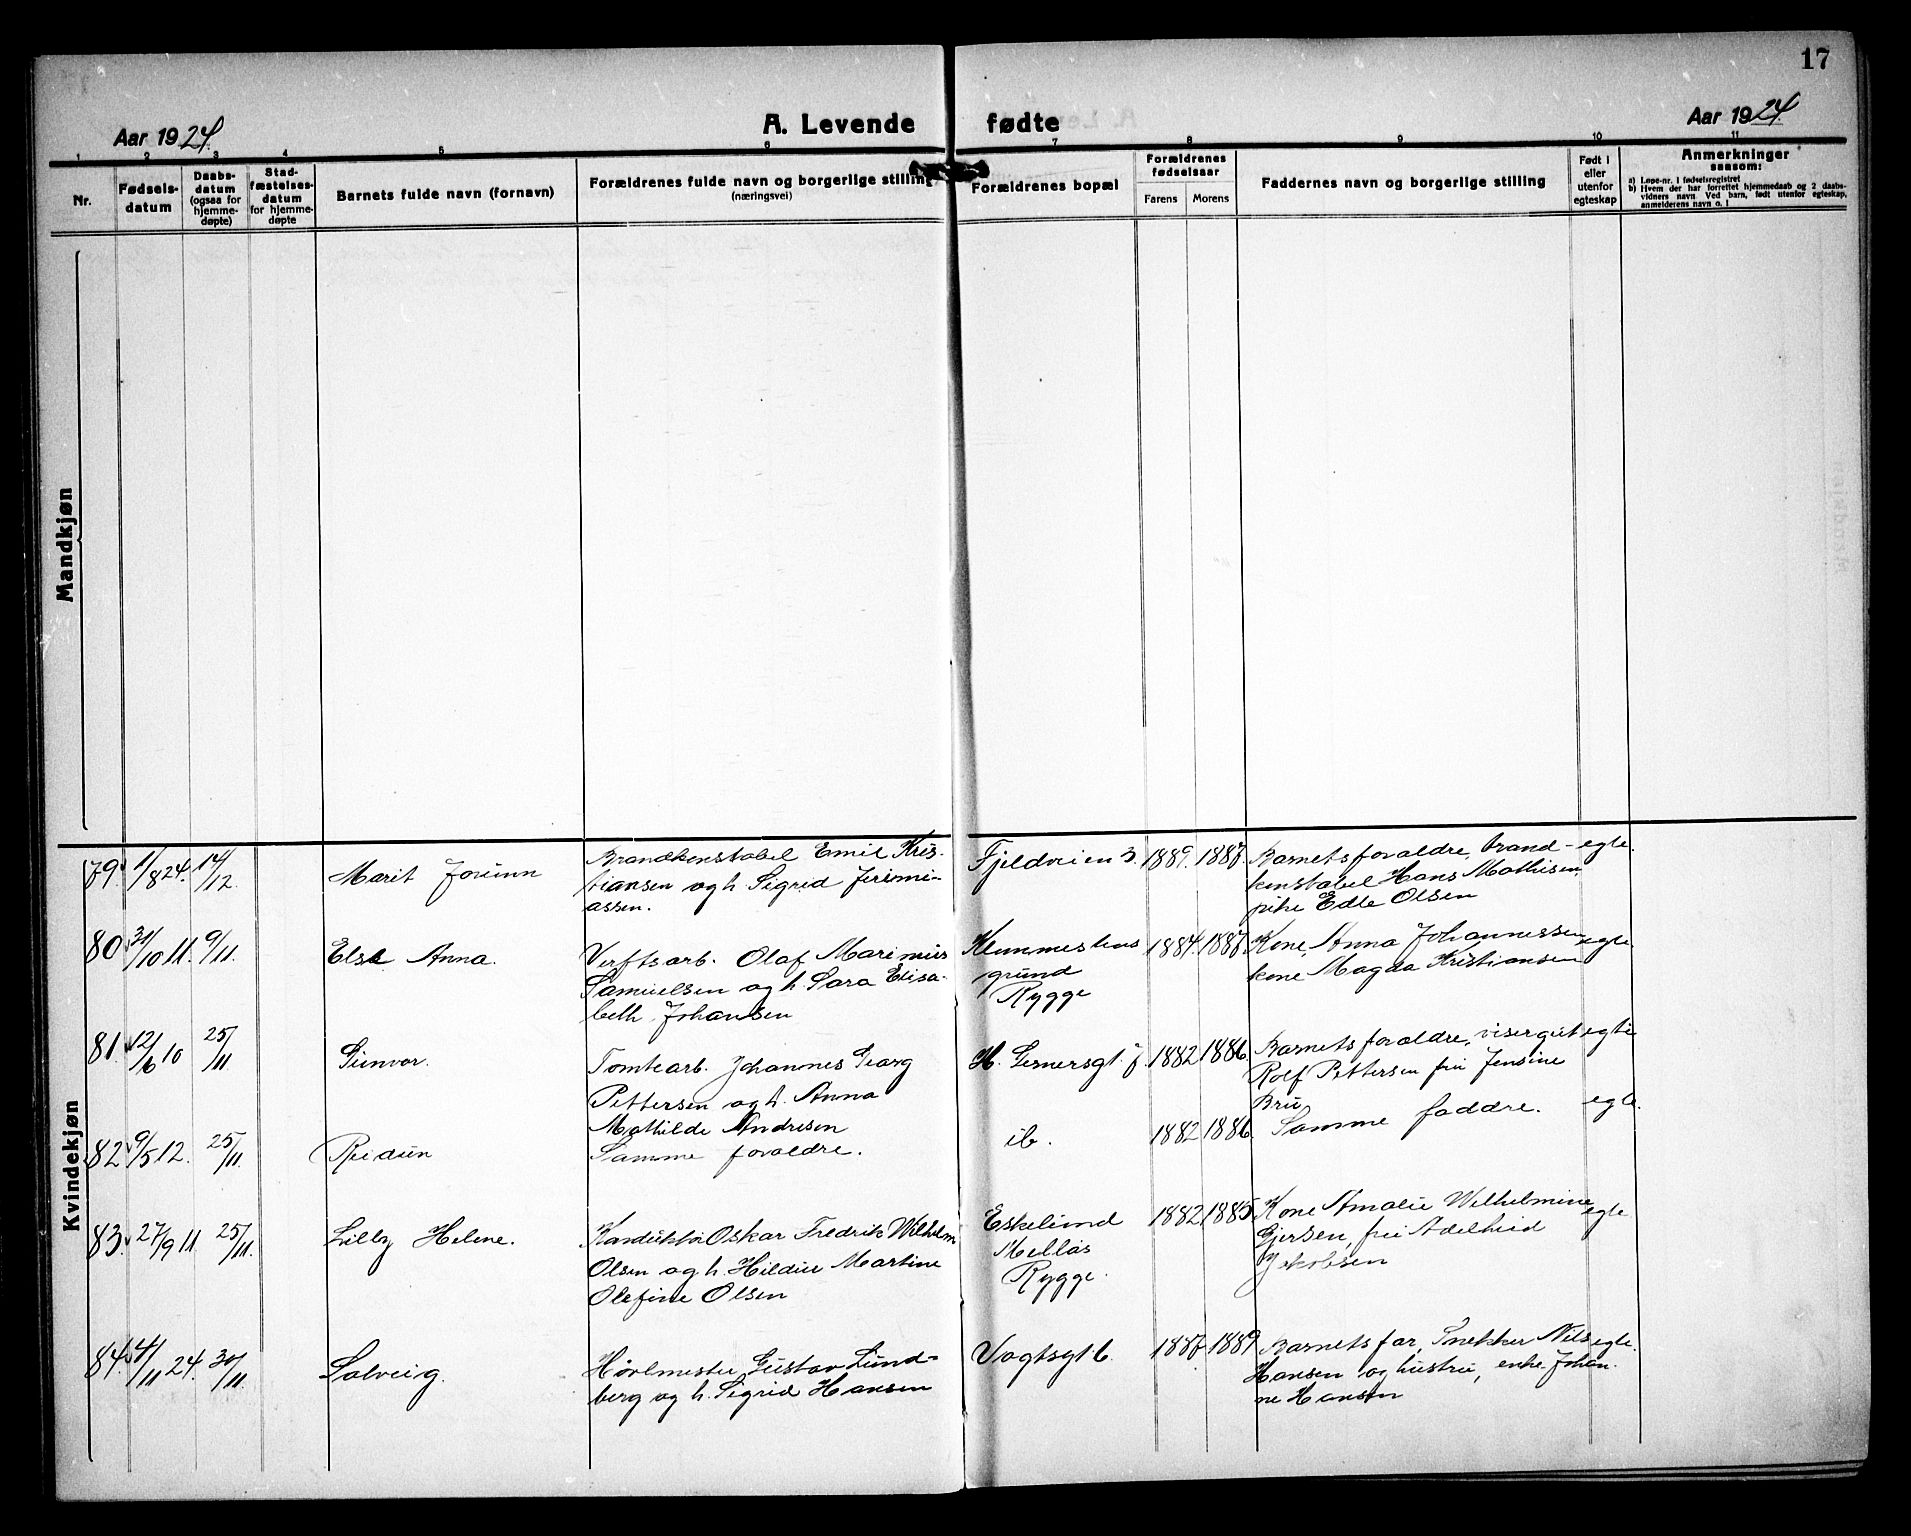 17
Aar 1924.
A. Levende fødte
Aar 1924.
1 2 3 4 5 6 7 8 9 10 11
Nr.
Fødsels-
datum
Daabs-
datum
(ogsaa for
hjemme-
døpte)
Stad-
fæstelses-
datum
for hjemme-
døpte
Barnets fulde navn (fornavn)
Forældrenes fulde navn og borgerlige stilling
(næringsvei)
Forældrenes bopæl
Forældrenes
fødselsaar
Farens Morens
Faddernes navn og borgerlige stilling
Født i
eller
utenfor
egteskap
Anmerkninger
saasom:
a) Løpe-nr. i fødselsregistret
b) Hvem der har forrettet hjemmedaab og 2 daabs-
vidners navn Ved barn, født utenfor egteskap,
anmelderens navn o. l
Mandkjøn
Kvindekjøn
79. 1/8 24. 14/12
Marit Jorunn
Brandkonstabel Emil Kris-
tiansen og h. Sigrid Jeremi-
assen.
Fjeldveien 3. 1889. 1887.
Barnets forældre, brand-
konstabel Hans Mathisen,
pike Edle Olsen
egte.
80 31/10 11. 9/11.
Else Anna.
Verftsarb. Olaf Marinius
Samuelsen og h. Sara Elisa-
beth Johansen
Klommestens
grund
Rygge
1884. 1887.
Kone Anna Johannessen
kone Magda Kristiansen
egte
81. 12/6 10 25/11.
Gunvor.
Tomtearb. Johannes Georg
Pettersen og h. Anna
Mathilde Andresen
H. Gernersgt. 7. 1882 1886.
Barnets forældre, visergut
Rolf Pettersen frk Jensine
Bru
egte
82 9/5 12. 25/11.
Reidun
Samme forældre.
ib.
1882 1886.
Samme faddre.
egte.
83. 27/9 11 25/11.
Lilly Helene.
Konduktør Oskar Fredrik Wilhelm
Olsen og h. Hildur Martine
Olefine Olsen
Eskelund
Melløs
Rygge.
1882 1885
Kone Amalie Wilhelmine
Gjersen, frk Adelheid
Jakobsen
egte
84. 4/11 24. 30/11.
Solveig.
Høvlmester Gustav Lund-
berg og h. Sigrid Hansen
Vogtsgt 6. 1887 1889
Barnets far, Snekker Nils
Hansen og hustru, enke Johan-
ne Hansen
egte.